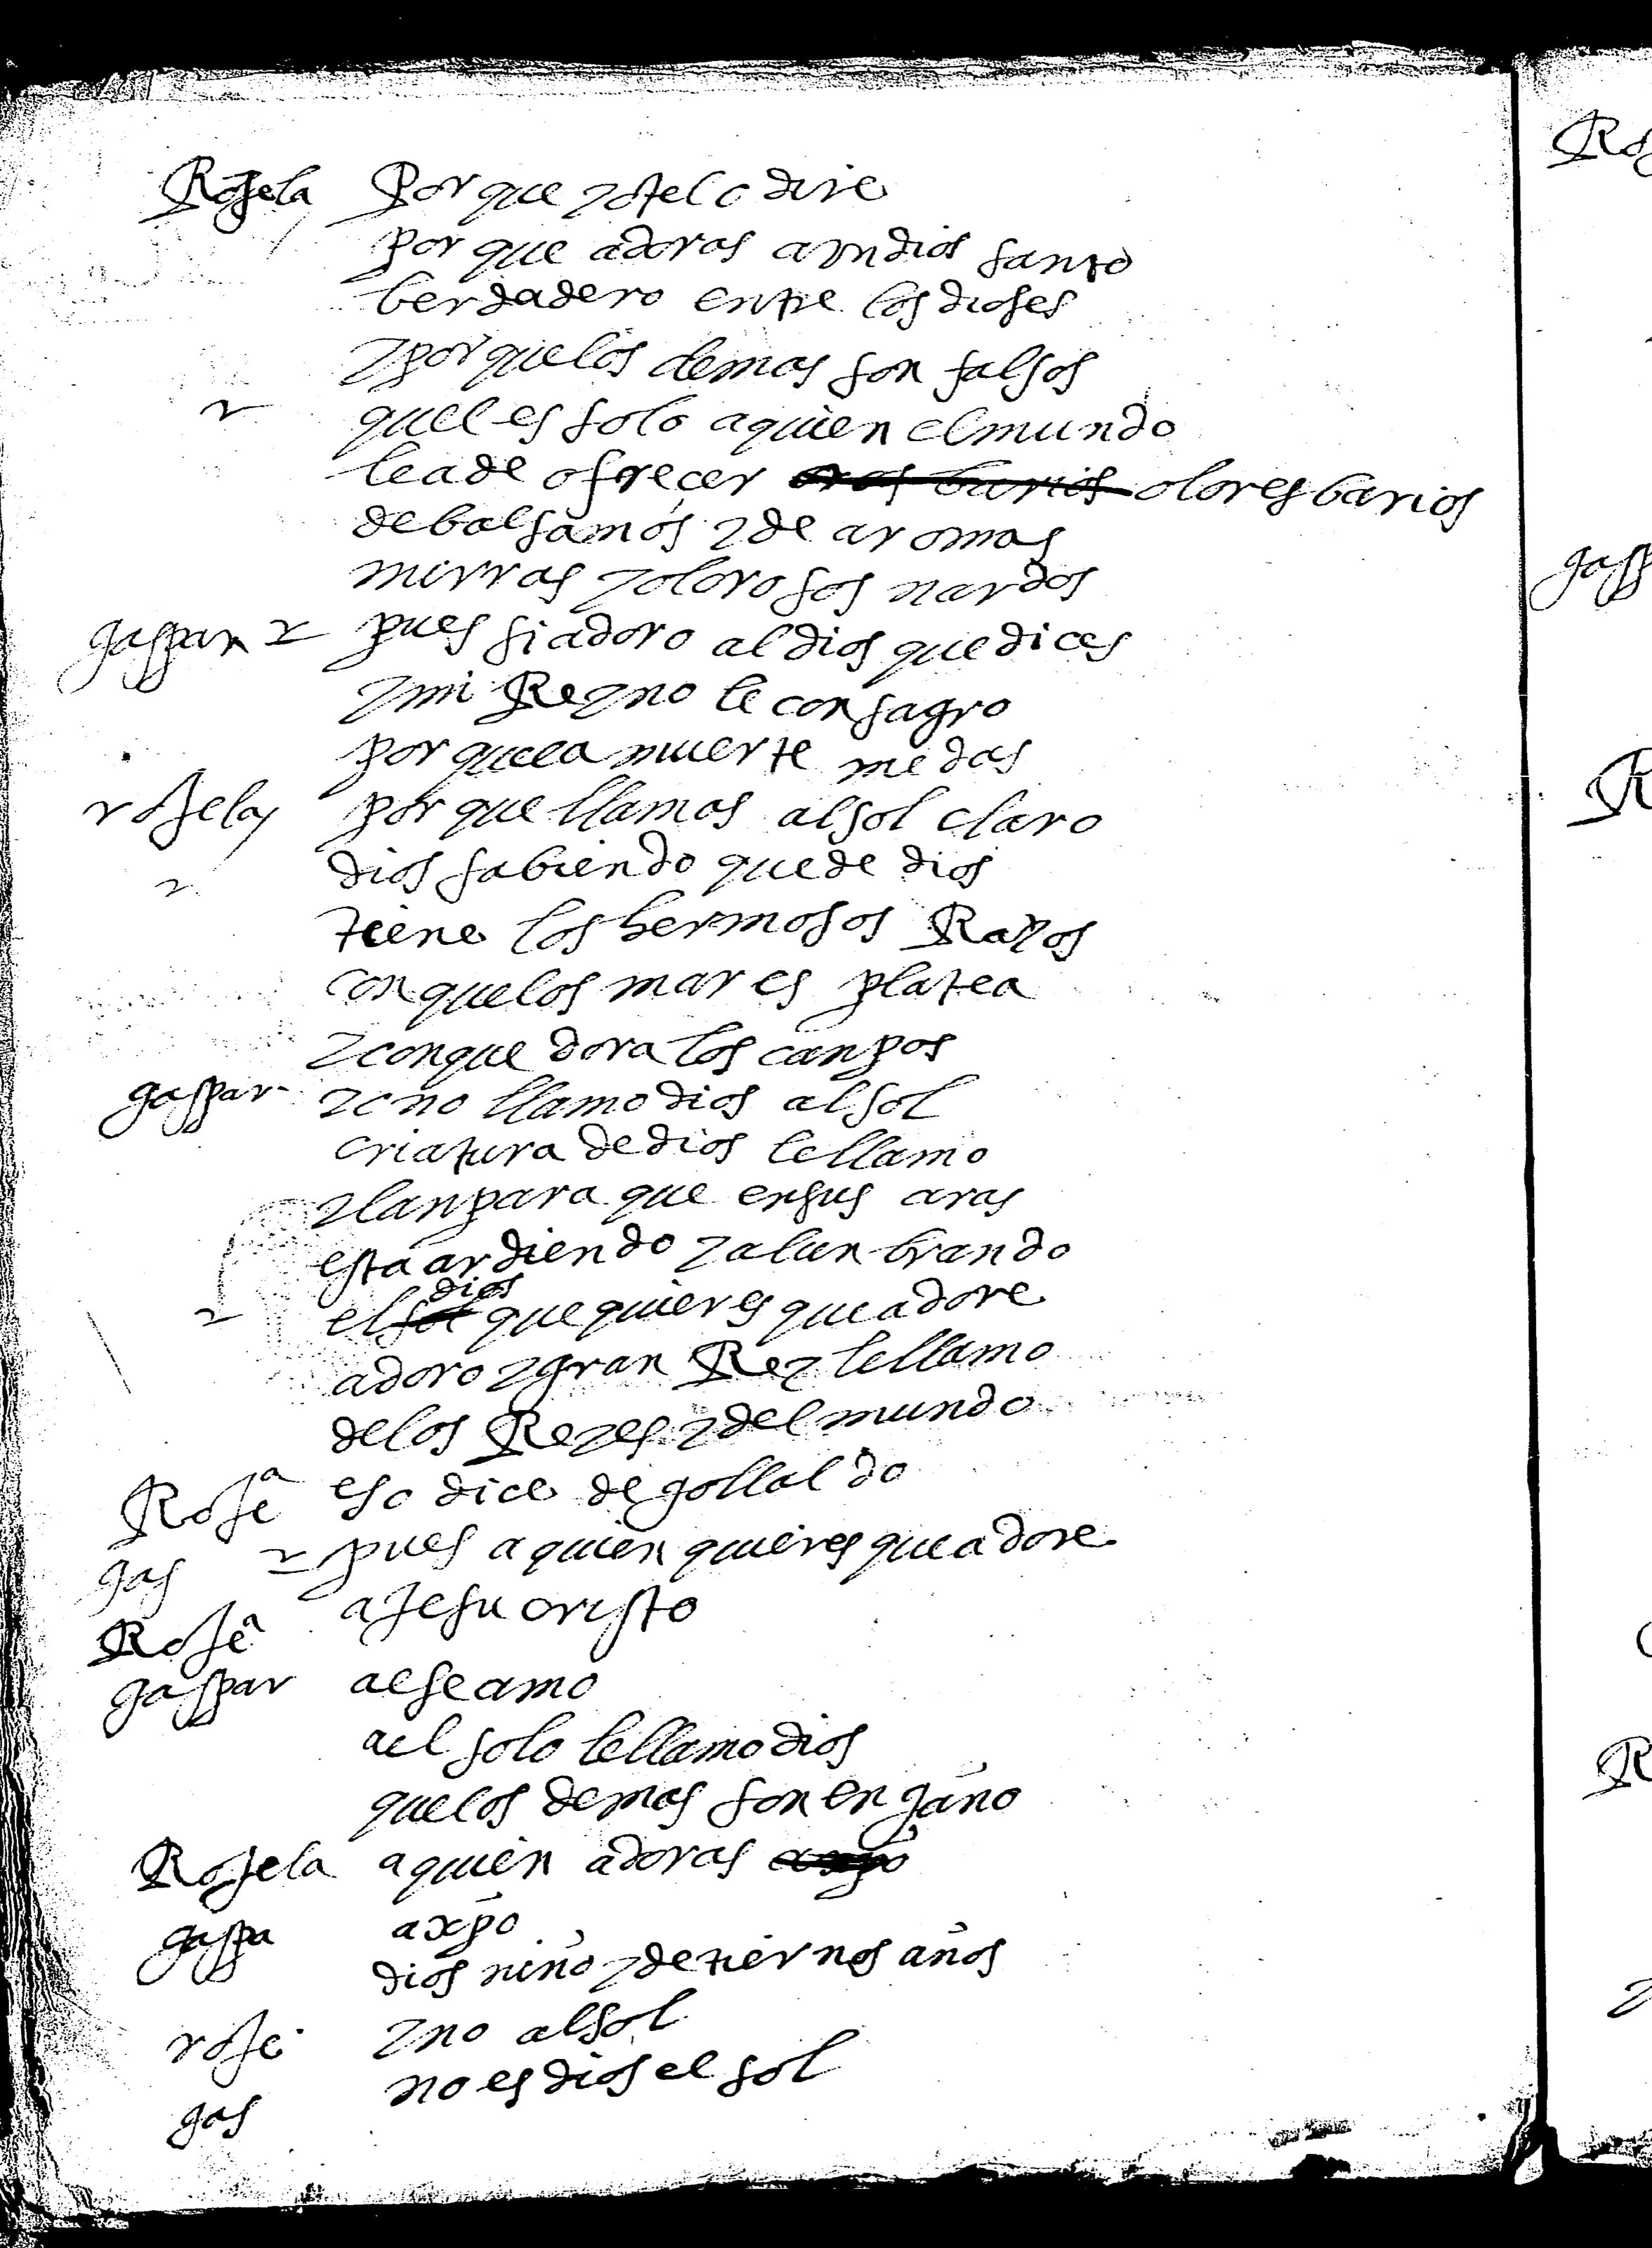 Rosela Por que yo telo dire
por que adoras a un dios santo
berdadero entre los dioses
y por que los demas son falsos
quel es solo a quien el mundo
lea de ofrecer oras barios olores barios
de balsamos y de aromas
mirras y olorosos nardos
gaspar pues si adoro al dios que dices
y mi Reyno le consagro
por que ea muerte me das
rosela por que llamas al sol claro
dios sabiendo que de dios
tiene los hermosos Rayos
con que los mares platea
y con que dora los canpos
gaspar yo no llamo dios al sol
criatura de dios le llamo
y lanpara que en sus aras
esta ardiendo y alunbrando
el sol dios que quieres que adore
adoro y gran Rey le llamo
de los Reyes y del mundo
Rose^a eso dice de gollaldo
gas pues a quien quieres que adore
Rose^a a Jesu cristo
gaspar a ese amo
a el solo le llamo dios
que los demas son engaño
Rosela a quien adoras a xpo
gaspa a xpo
dios niño y de tiernos años
rose y no al sol
gas no es dios el sol
Ros
gasp
R
R